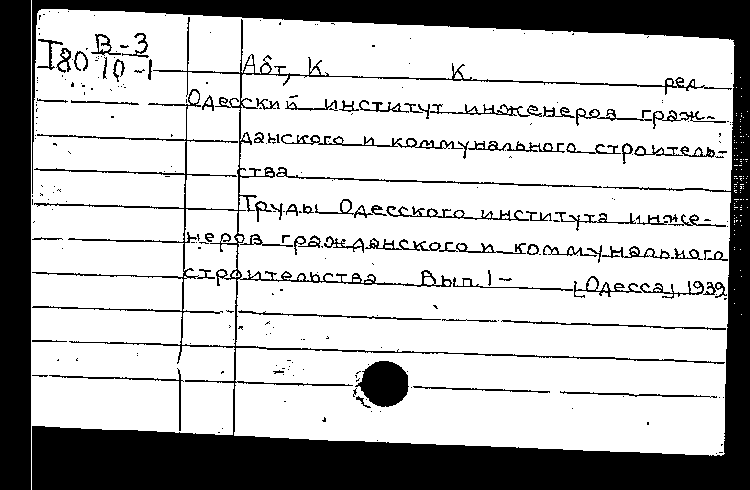 I80 В-3
10-1
Абт, К. К. ред.
Одесский институт инженеров граж-
данского и коммунального строитель-
ства.
Труды Одесского института инже-
неров гражданского и коммунального
строительства Вып. 1- [Одесса], 1939.